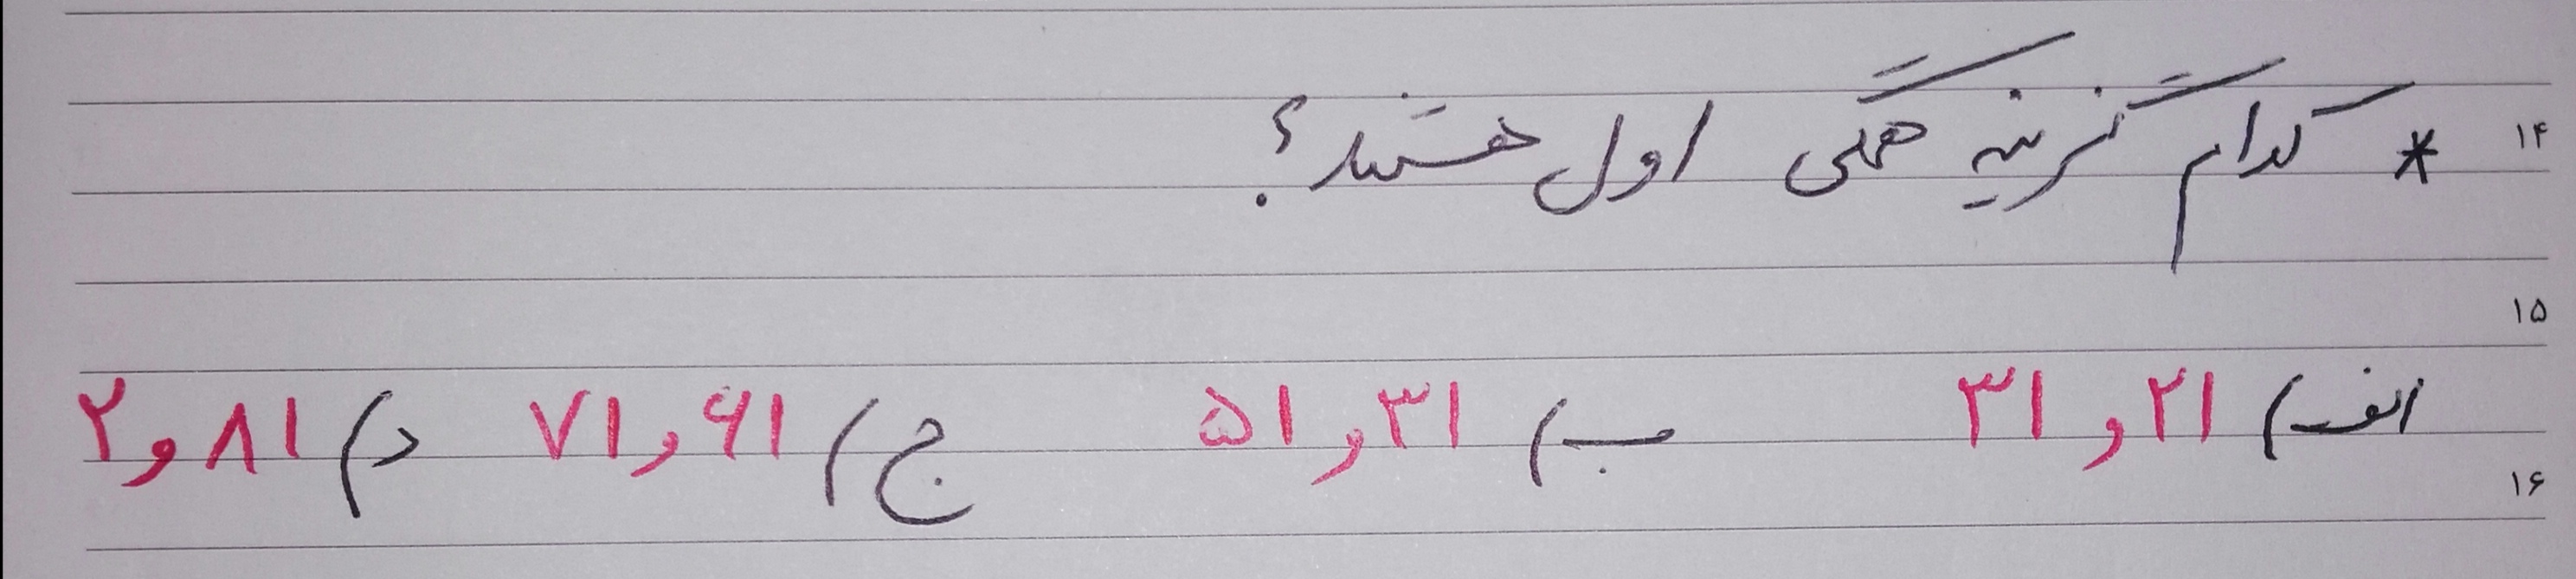 ۱۴
* کدام گزینه همگی اول هستند؟
۱۵
الف) ۲۱ و ۳۱ ب) ۳۱ و ۵۱ ج) ۶۱ و ۷۱ د) ۸۱ و ۲
۱۶